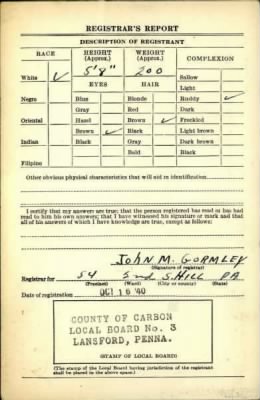 REGISTRAR'S REPORT
DESCRIPTION OF REGISTRANT
RACE HEIGHT (Approx.) WEIGHT (Approx.) COMPLEXION
5'8" 200
White ✓ Sallow
EYES HAIR Light
Negro Blue Blonde Ruddy ✓
Gray Red Dark
Oriental Hazel Brown ✓ Freckled
Brown ✓ Black Light brown
Indian Black Gray Dark brown
Bald Black
Filipino
Other obvious physical characteristics that will aid in identification
I certify that my answers are true; that the person registered has read or has had
read to him his own answers; that I have witnessed his signature or mark and that
all of his answers of which I have knowledge are true, except as follows:
JOHN M. GORMLEY
(Signature of registrar)
Registrar for 54 2nd S. HILL PA
(Precinct) (Ward) (City or county) (State)
Date of registration OCT 16 '40
COUNTY OF CARBON
LOCAL BOARD No. 3
LANSFORD, PENNA.
(STAMP OF LOCAL BOARD)
(The stamp of the Local Board having jurisdiction of the registrant
shall be placed in the above space.)